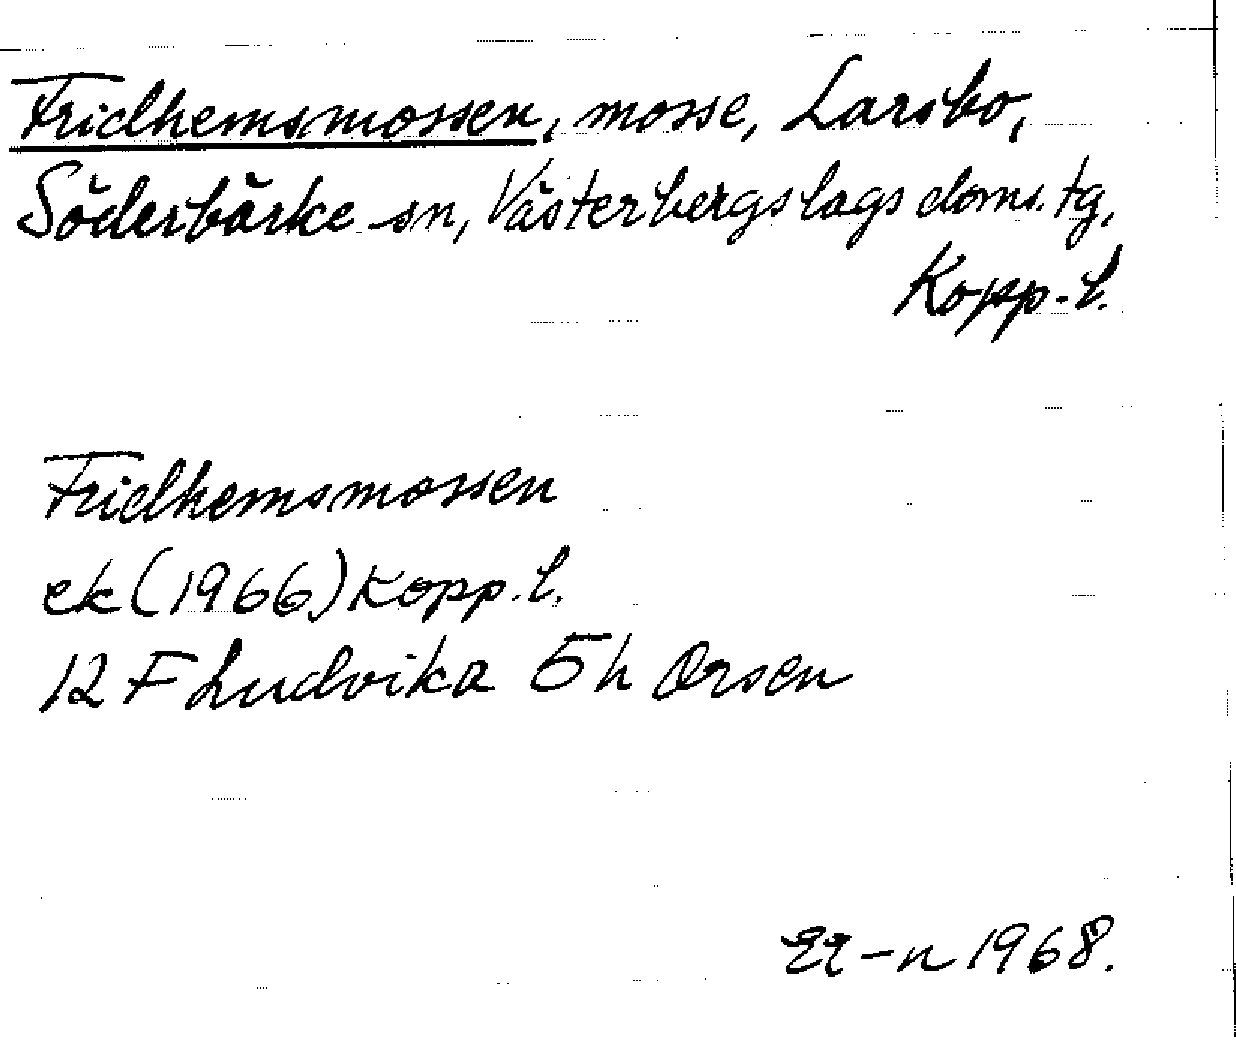 Fridhemsmossen, mosse, Larsbo,
Söderbärke sn, Västerbergslags doms. tg,
Kopp. l.
Fridhemsmossen
ek (1966) Kopp. l.
12 F Ludvika 5 h Orsen
-n 1968.